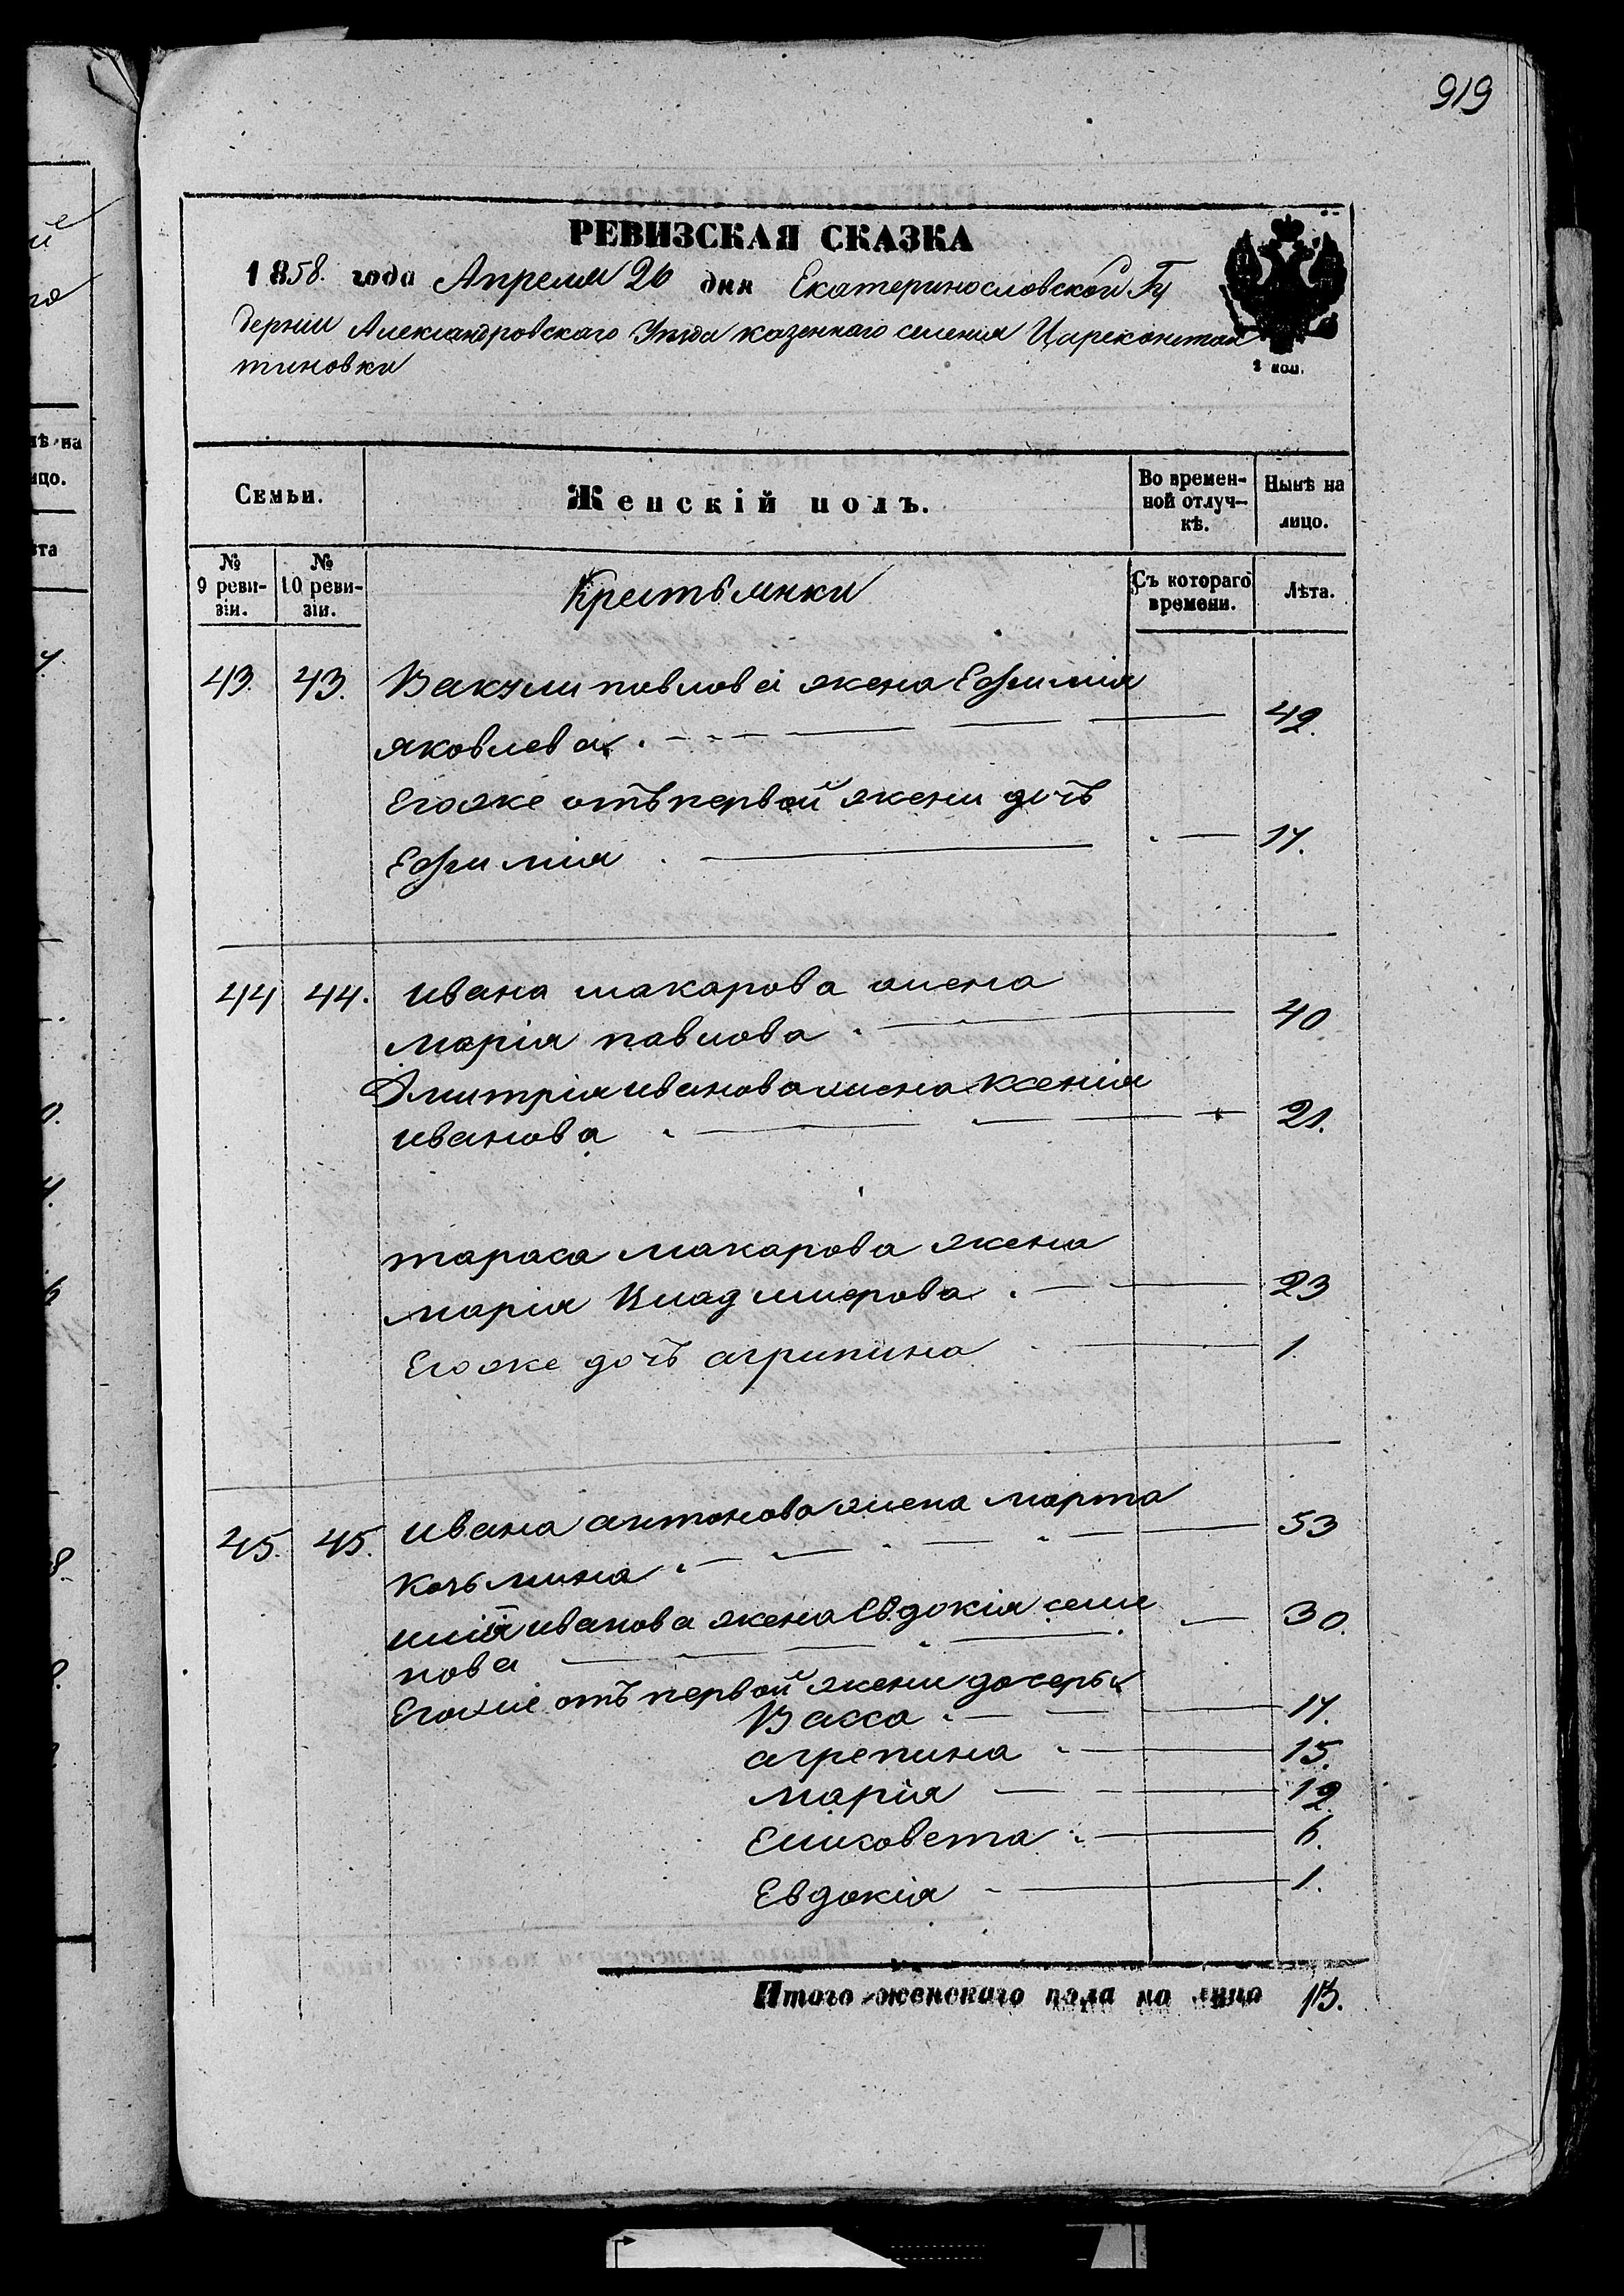 919
РЕВИЗСКАЯ СКАЗКА
1858. года Апреля 26 дня Екатеринословской Гу
берніи Александровскаго Уѣзда казеннаго селенія Цареконстан
тиновки
2 коп.
Семьи. Женскій полъ. Во времен-ной отлуч-кѣ. Нынѣ на лицо.
№ 9 реви-зіи. № 10 реви-зіи. Крестьянки Съ котораго времени. Лѣта.
43. 43. Вакули павлова жена Ефимія
яковлева 42.
Егоже отъ первой жени дочъ
Ефимія 17.
44 44. ивана макарова жена
марія павлова 40
Дмитрія иванова жена ксенія
иванова 21.
тараса макарова жена
марія Владимирова 23
Егоже дочъ агрипина 1.
45. 45. ивана антонова жена марта
козьмина 53
иванова жена Евдокія семе
нова 30.
Егоже отъ первой жени дочеры
Васса 17.
агрепина 15.
марія 12.
Елисовета 6.
Евдокія 1.
Итого женскаго пола на лицо 13.